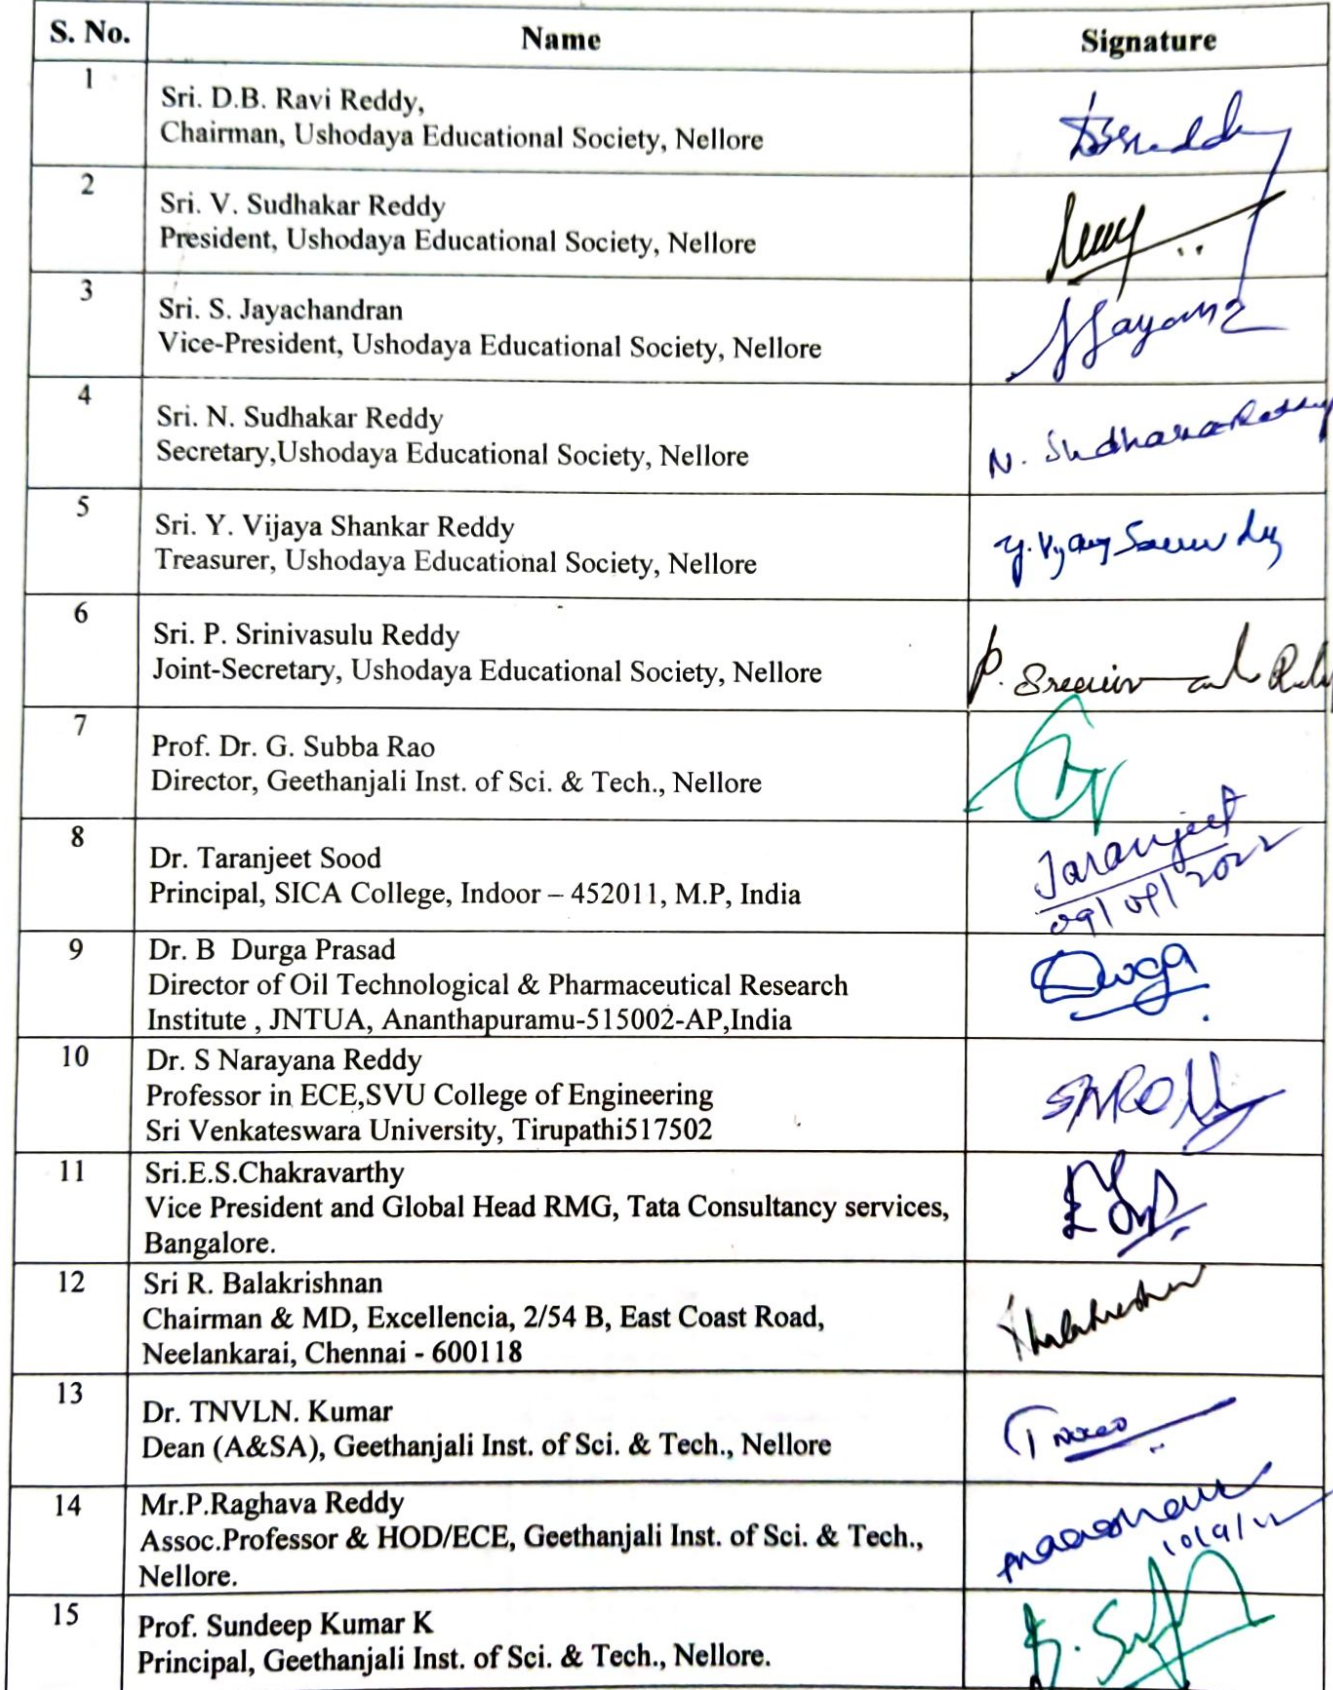 S. No. Name Signature
1
Sri. D.B. Ravi Reddy,
Chairman, Ushodaya Educational Society, Nellore
2
Sri. V. Sudhakar Reddy
President, Ushodaya Educational Society, Nellore
3
Sri. S. Jayachandran
Vice-President, Ushodaya Educational Society, Nellore
4
Sri. N. Sudhakar Reddy
Secretary,Ushodaya Educational Society, Nellore
N. Sudhakara Reddy
5
Sri. Y. Vijaya Shankar Reddy
Treasurer, Ushodaya Educational Society, Nellore
6
Sri. P. Srinivasulu Reddy
Joint-Secretary, Ushodaya Educational Society, Nellore
7
Prof. Dr. G. Subba Rao
Director, Geethanjali Inst. of Sci. & Tech., Nellore
8
Dr. Taranjeet Sood
Principal, SICA College, Indoor – 452011, M.P, India
Taranjeet
09/09/2022
9
Dr. B Durga Prasad
Director of Oil Technological & Pharmaceutical Research
Institute , JNTUA, Ananthapuramu-515002-AP,India
Durga
10
Dr. S Narayana Reddy
Professor in ECE,SVU College of Engineering
Sri Venkateswara University, Tirupathi517502
11
Sri.E.S.Chakravarthy
Vice President and Global Head RMG, Tata Consultancy services,
Bangalore.
12
Sri R. Balakrishnan
Chairman & MD, Excellencia, 2/54 B, East Coast Road,
Neelankarai, Chennai - 600118
13
Dr. TNVLN. Kumar
Dean (A&SA), Geethanjali Inst. of Sci. & Tech., Nellore
14
Mr.P.Raghava Reddy
Assoc.Professor & HOD/ECE, Geethanjali Inst. of Sci. & Tech.,
Nellore.
10/9/22
15
Prof. Sundeep Kumar K
Principal, Geethanjali Inst. of Sci. & Tech., Nellore.